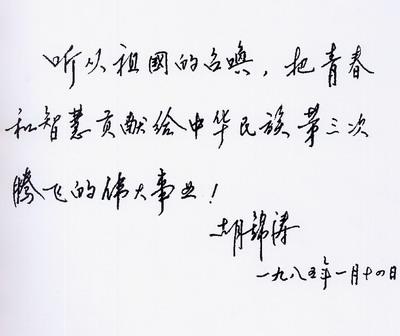 听从祖國的召唤，把青春
和智慧贡献给中华民族第三次
腾飞的伟大事业！
胡錦涛
一九八五年一月十四日